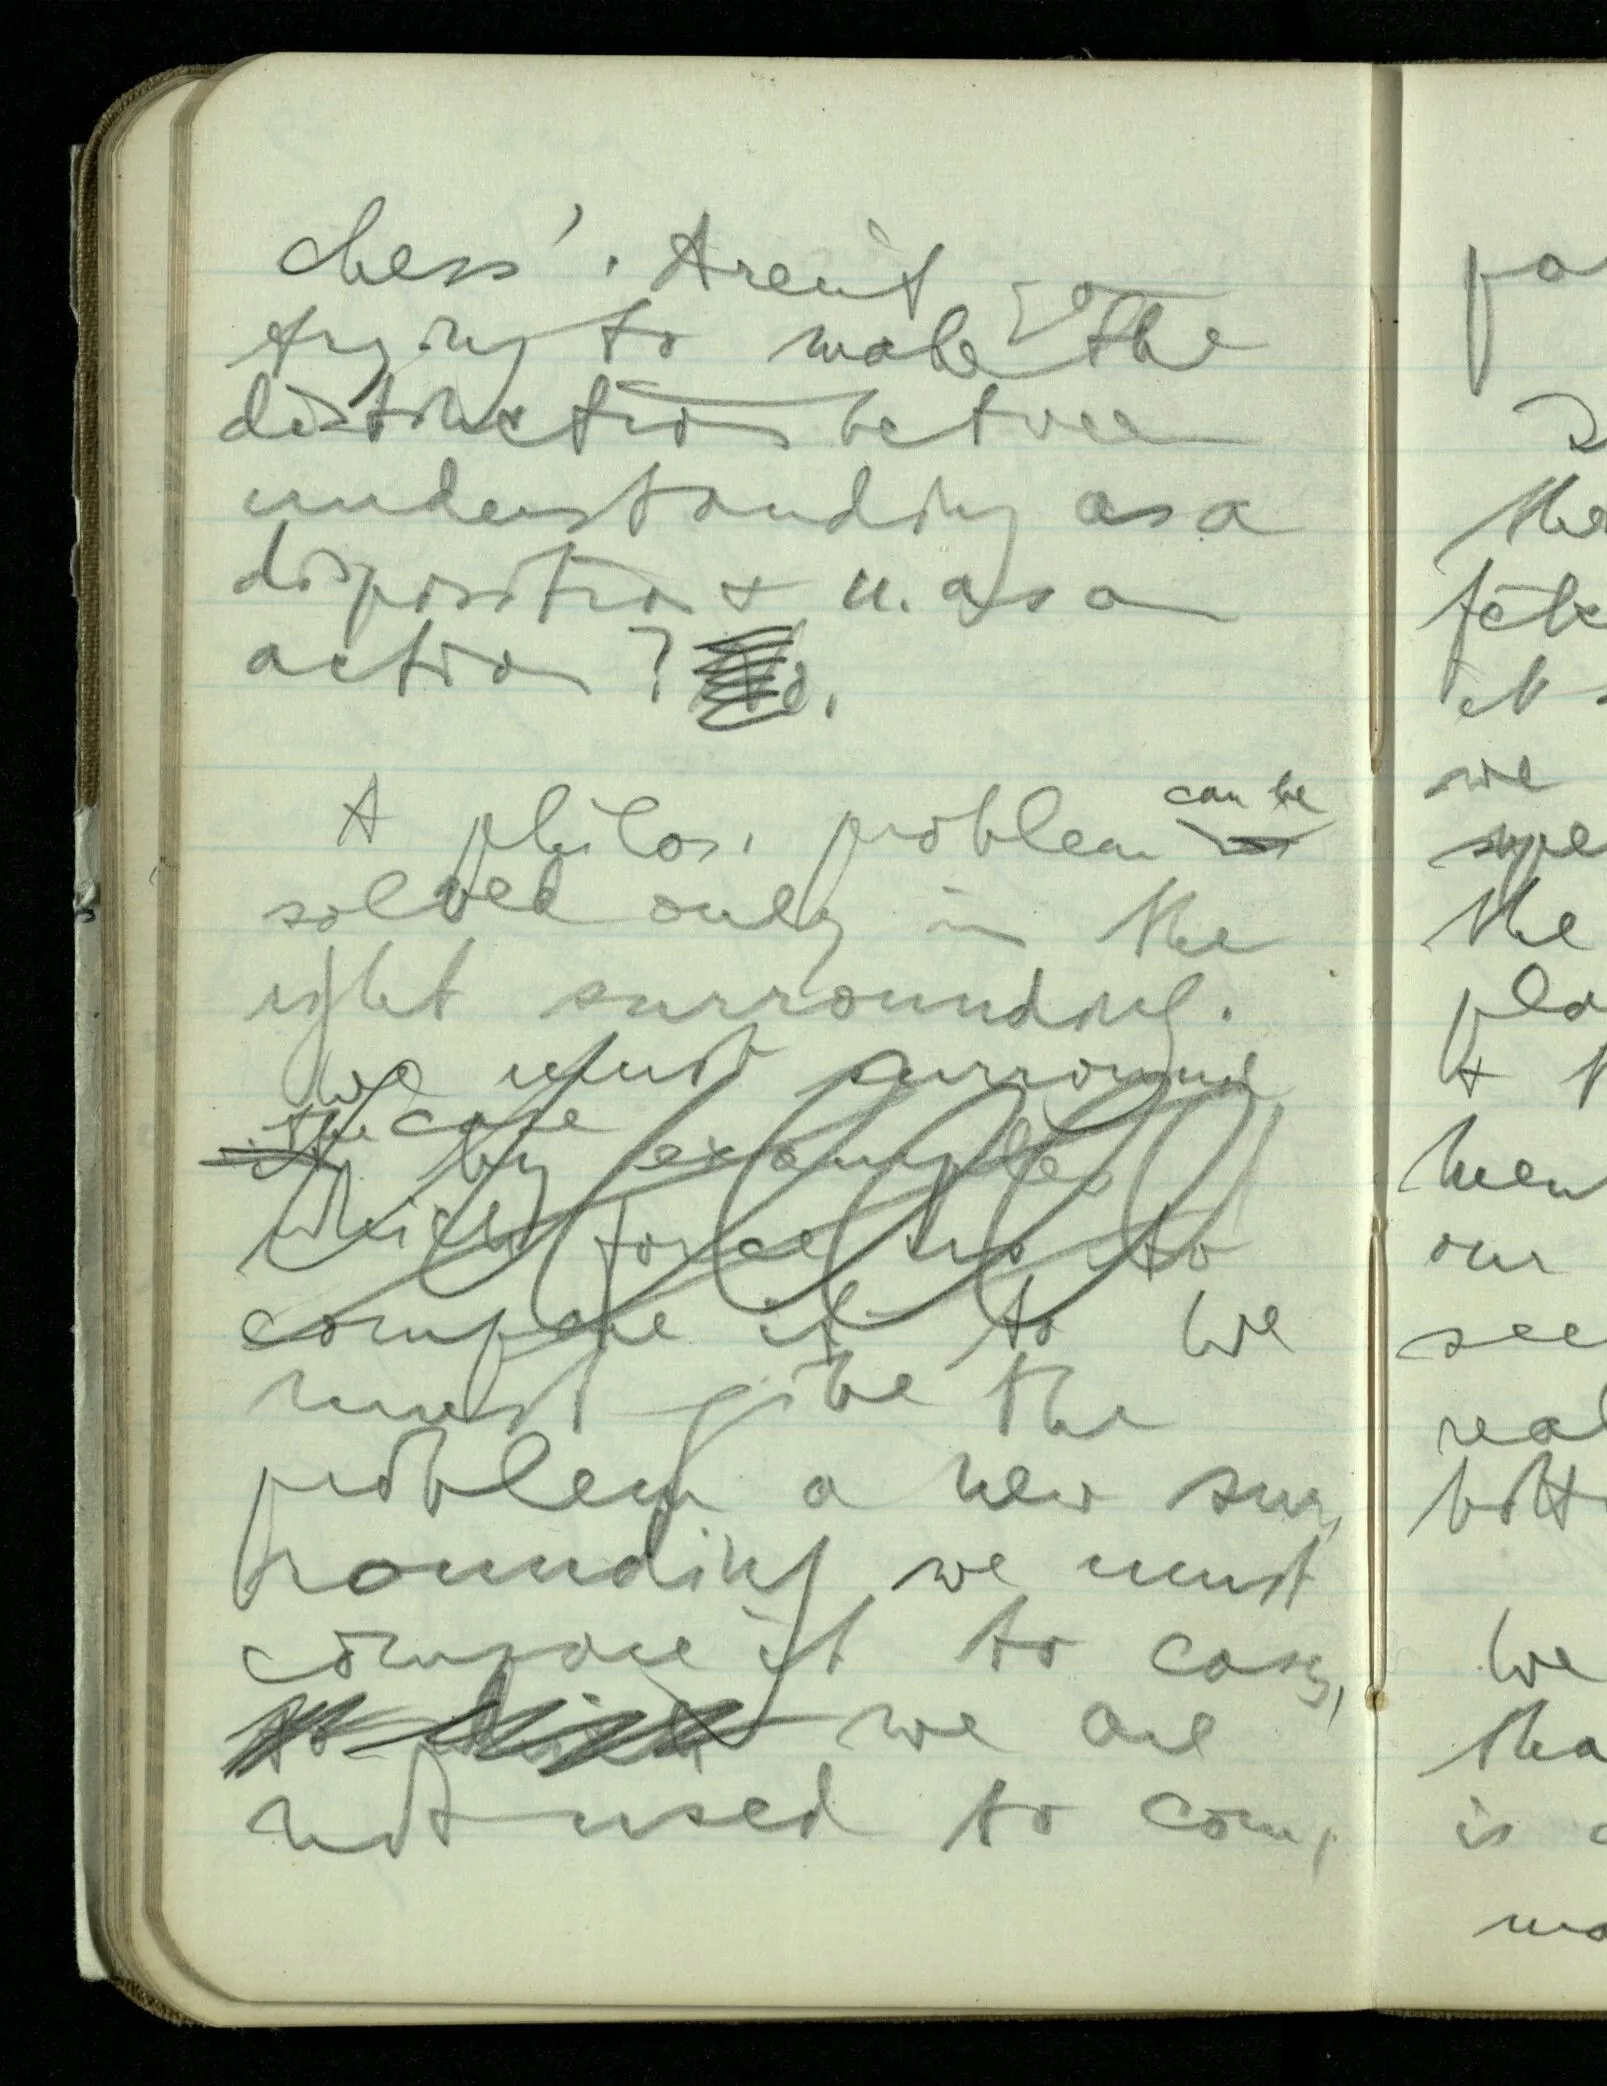 chess'. Aren't you
trying to make the
distinction between
understanding as a
disposition & u. as an
action?
A philos. problem can be
solved only in the
right surrounding.
We must surround
the case by examples
which force us to
compare it to We
must give the
problem a new sur-
rounding we must
compare it to cases,
we are
not used to com-
the
we
the
&
our
see
We
is